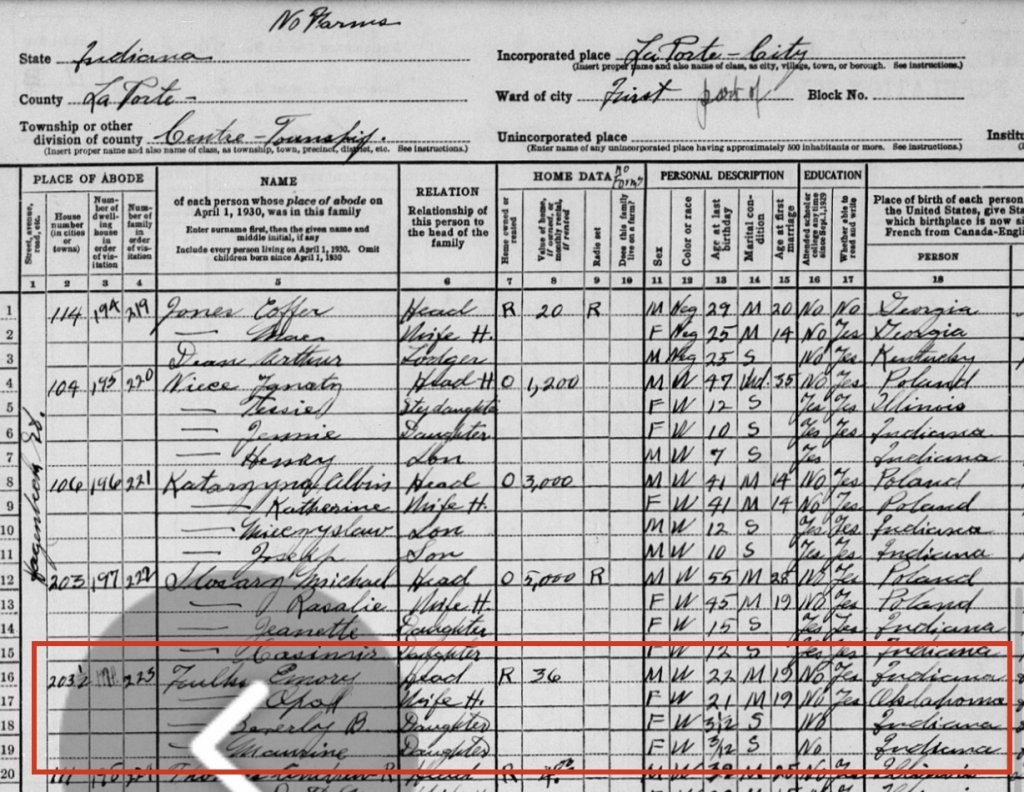 No Farms
State Indiana
Incorporated place La Porte - City
(Insert proper name and also name of class, as city, village, town, or borough. See instructions.)
County La Porte
Ward of city First part of Block No.
Township or other
division of county Centre - Township
(Insert proper name and also name of class, as township, town, precinct, district, etc. See instructions.)
Unincorporated place
(Enter name of any unincorporated place having approximately 500 inhabitants or more. See instructions.)
Instit
PLACE OF ABODE
Street, avenue, road, etc.
House number (in cities or towns)
Number of dwelling house in order of visitation
Number of family in order of visitation
NAME
of each person whose place of abode on
April 1, 1930, was in this family
Enter surname first, then the given name and
middle initial, if any
Include every person living on April 1, 1930. Omit
children born since April 1, 1930
RELATION
Relationship of
this person to
the head of the
family
HOME DATA no Farms
Home owned or rented
Value of home, if owned, or monthly rental, if rented
Radio set
Does this family live on a farm?
PERSONAL DESCRIPTION
Sex
Color or race
Age at last birthday
Marital condition
Age at first marriage
EDUCATION
Attended school or college any time since Sept. 1, 1929
Whether able to read and write
Place of birth of each person
the United States, give Sta
which birthplace is now si
French from Canada-Engli
PERSON
1 2 3 4 5 6 7 8 9 10 11 12 13 14 15 16 17 18
1 114 194 219 Jones Coffer Head R 20 R M Neg 29 M 20 No No Georgia
2 — Mae Wife H. F Neg 25 M 14 No Yes Georgia
3 Dean Arthur Lodger M Neg 25 S No Yes Kentucky
4 104 195 220 Niece Ignatz Head H O 1,200 M W 47 Wd. 35 No Yes Poland
5 — Tessie Stepdaughter F W 12 S Yes Yes Illinois
6 — Jennie Daughter F W 10 S Yes Yes Indiana
7 — Henry Son M W 7 S Yes Indiana
8 106 196 221 Albin Head O 3,000 M W 41 M 14 No Yes Poland
9 — Katherine Wife H. F W 41 M 14 No Yes Poland
10 — Son M W 12 S Yes Yes Indiana
11 — Joseph Son M W 10 S Yes Yes Indiana
12 203 197 222 Michael Head O 5,000 R M W 55 M 28 No Yes Poland
13 — Rosalie Wife H. F W 45 M 19 No Yes Poland
14 — Jeanette Daughter F W 15 S Yes Yes Indiana
15 — Casimir Daughter F W 12 S Yes Yes Indiana
16 203½ 223 Emory Head R 36 M W 22 M 19 No Yes Indiana
17 — Opal Wife H. F W 21 M 19 No Yes Oklahoma
18 — Beverley B. Daughter F W S No Indiana
19 — Maurine Daughter F W 3/12 S No Indiana
20 Head R M W